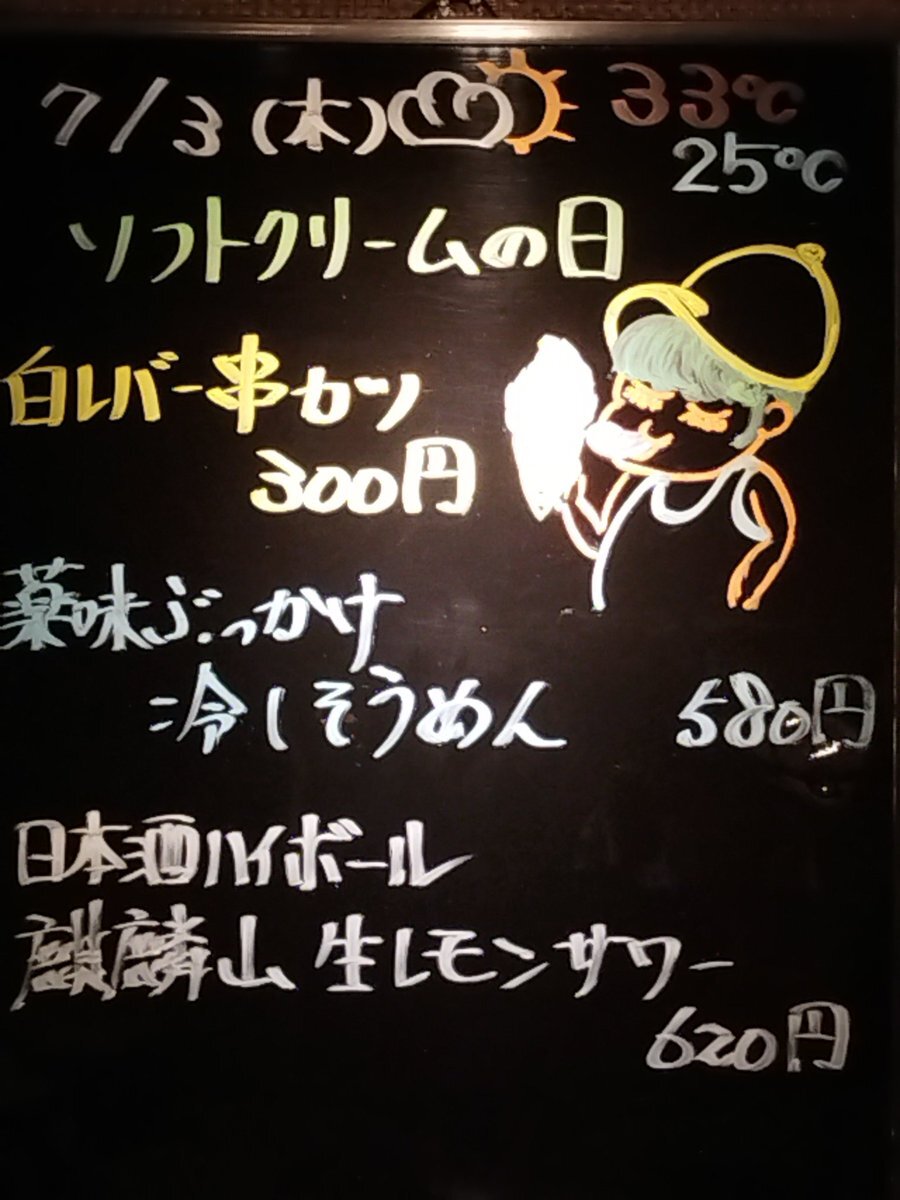 7/3(木) 33℃
25℃
ソフトクリームの日
白レバー串カツ
300円
薬味ぶっかけ
冷しそうめん 580円
日本酒ハイボール
麒麟山 生レモンサワー
620円